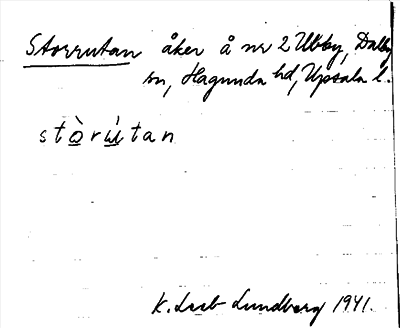 Storrutan åker å nr 2 Ubby, Dalby
sn, Hagunda hd, Upsala l.
stòrútan
K. Leeb-Lundberg 1941.